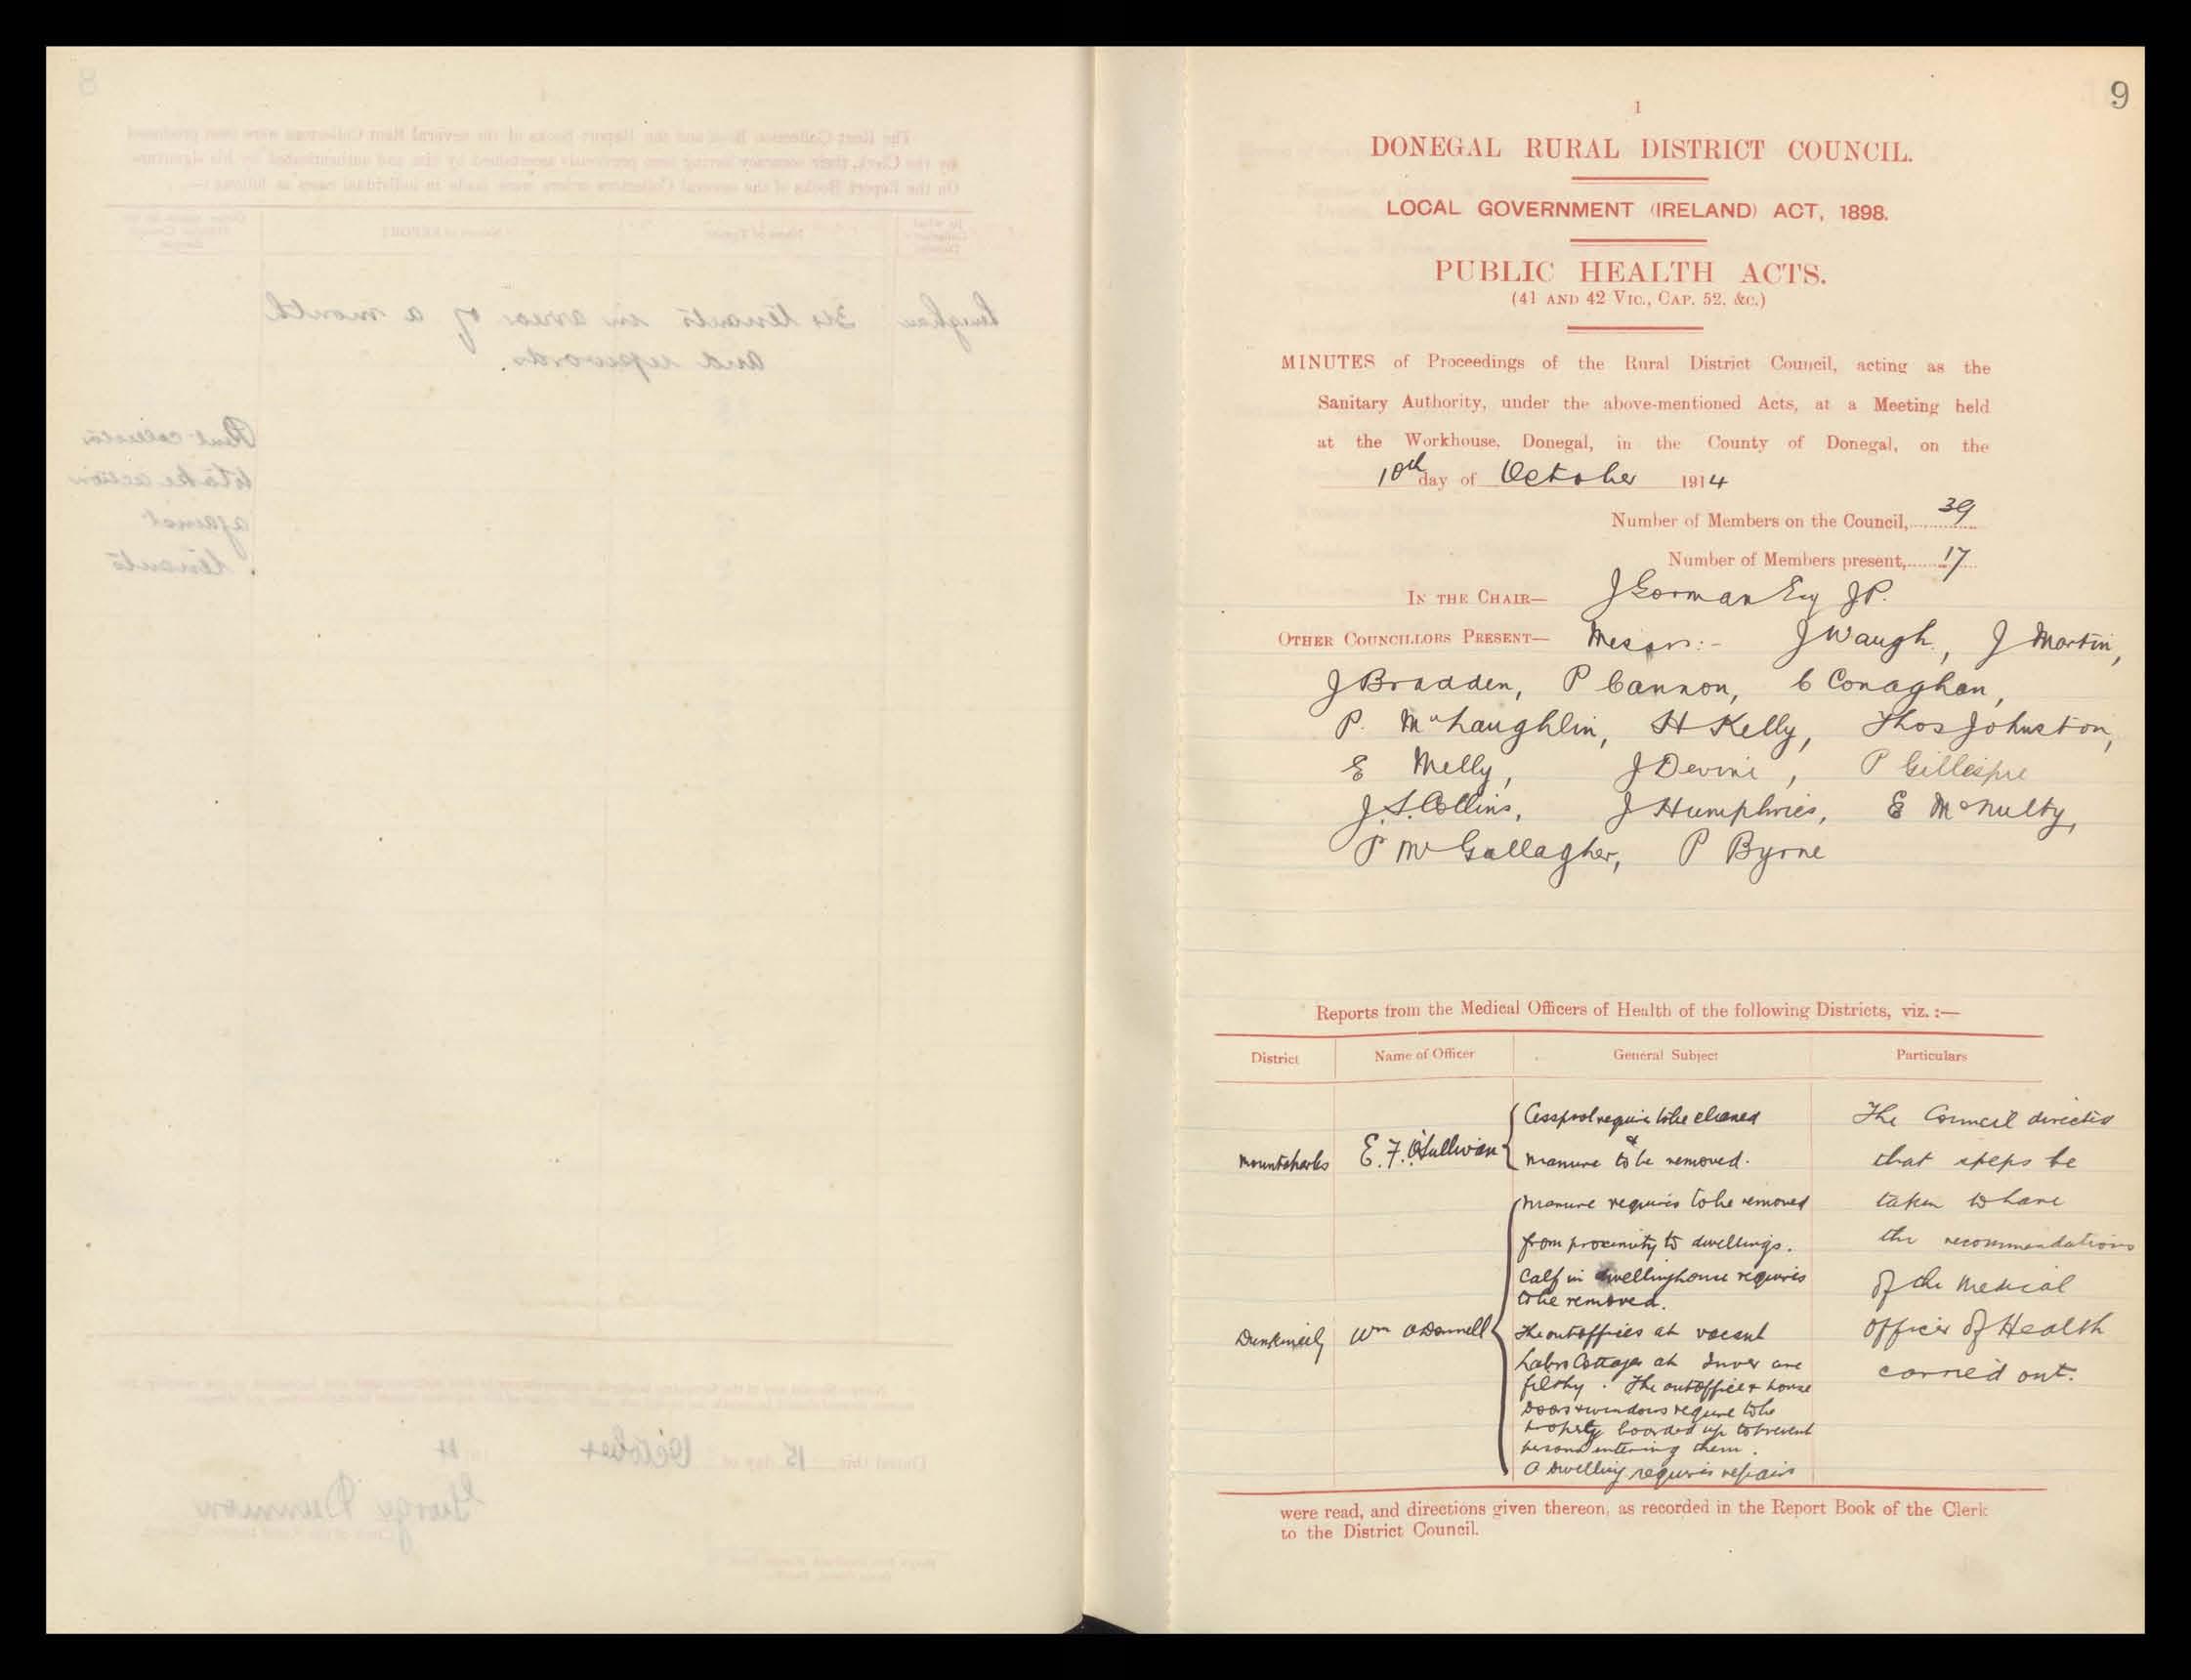 9
1
DONEGAL RURAL DISTRICT COUNCIL.
LOCAL GOVERNMENT (IRELAND) ACT, 1898.
PUBLIC HEALTH ACTS.
(41 AND 42 VIC., CAP. 52, &c.)
MINUTES of Proceedings of the Rural District Council, acting as the
Sanitary Authority, under the above-mentioned Acts, at a Meeting held
at the Workhouse, Donegal, in the County of Donegal, on the
10th day of October 1914
Number of Members on the Council, 39
Number of Members present, 17
IN THE CHAIR— J Gorman Esq J.P.
OTHER COUNCILLORS PRESENT— Messrs:- J Waugh, J Martin,
J Bradden, P Cannon, C Conaghan,
P. McLaughlin, H Kelly, Thos Johnston,
E Melly, J Devine, P Gillespie
J.S. Collins, J Humphries, E McNulty,
P McGallagher, P Byrne
Reports from the Medical Officers of Health of the following Districts, viz. :—
District Name of Officer General Subject Particulars
Mountcharles E. F. O'Sullivan Cesspool require to be cleaned
&
manure to be removed.
Dunkineely Wm O Donnell Manure requires to be removed
from proximity to dwellings.
Calf in dwellinghouse requires
to be removed.
The outoffices at vacant
Labrs Cottages at Inver are
filthy. The outoffice & house
doors & windows require to be
properly boarded up to prevent
persons entering them.
A dwelling requires repairs
The Council directed
that steps be
taken to have
the recommendations
of the Medical
Officer of Health
carried out.
were read, and directions given thereon, as recorded in the Report Book of the Clerk
to the District Council.